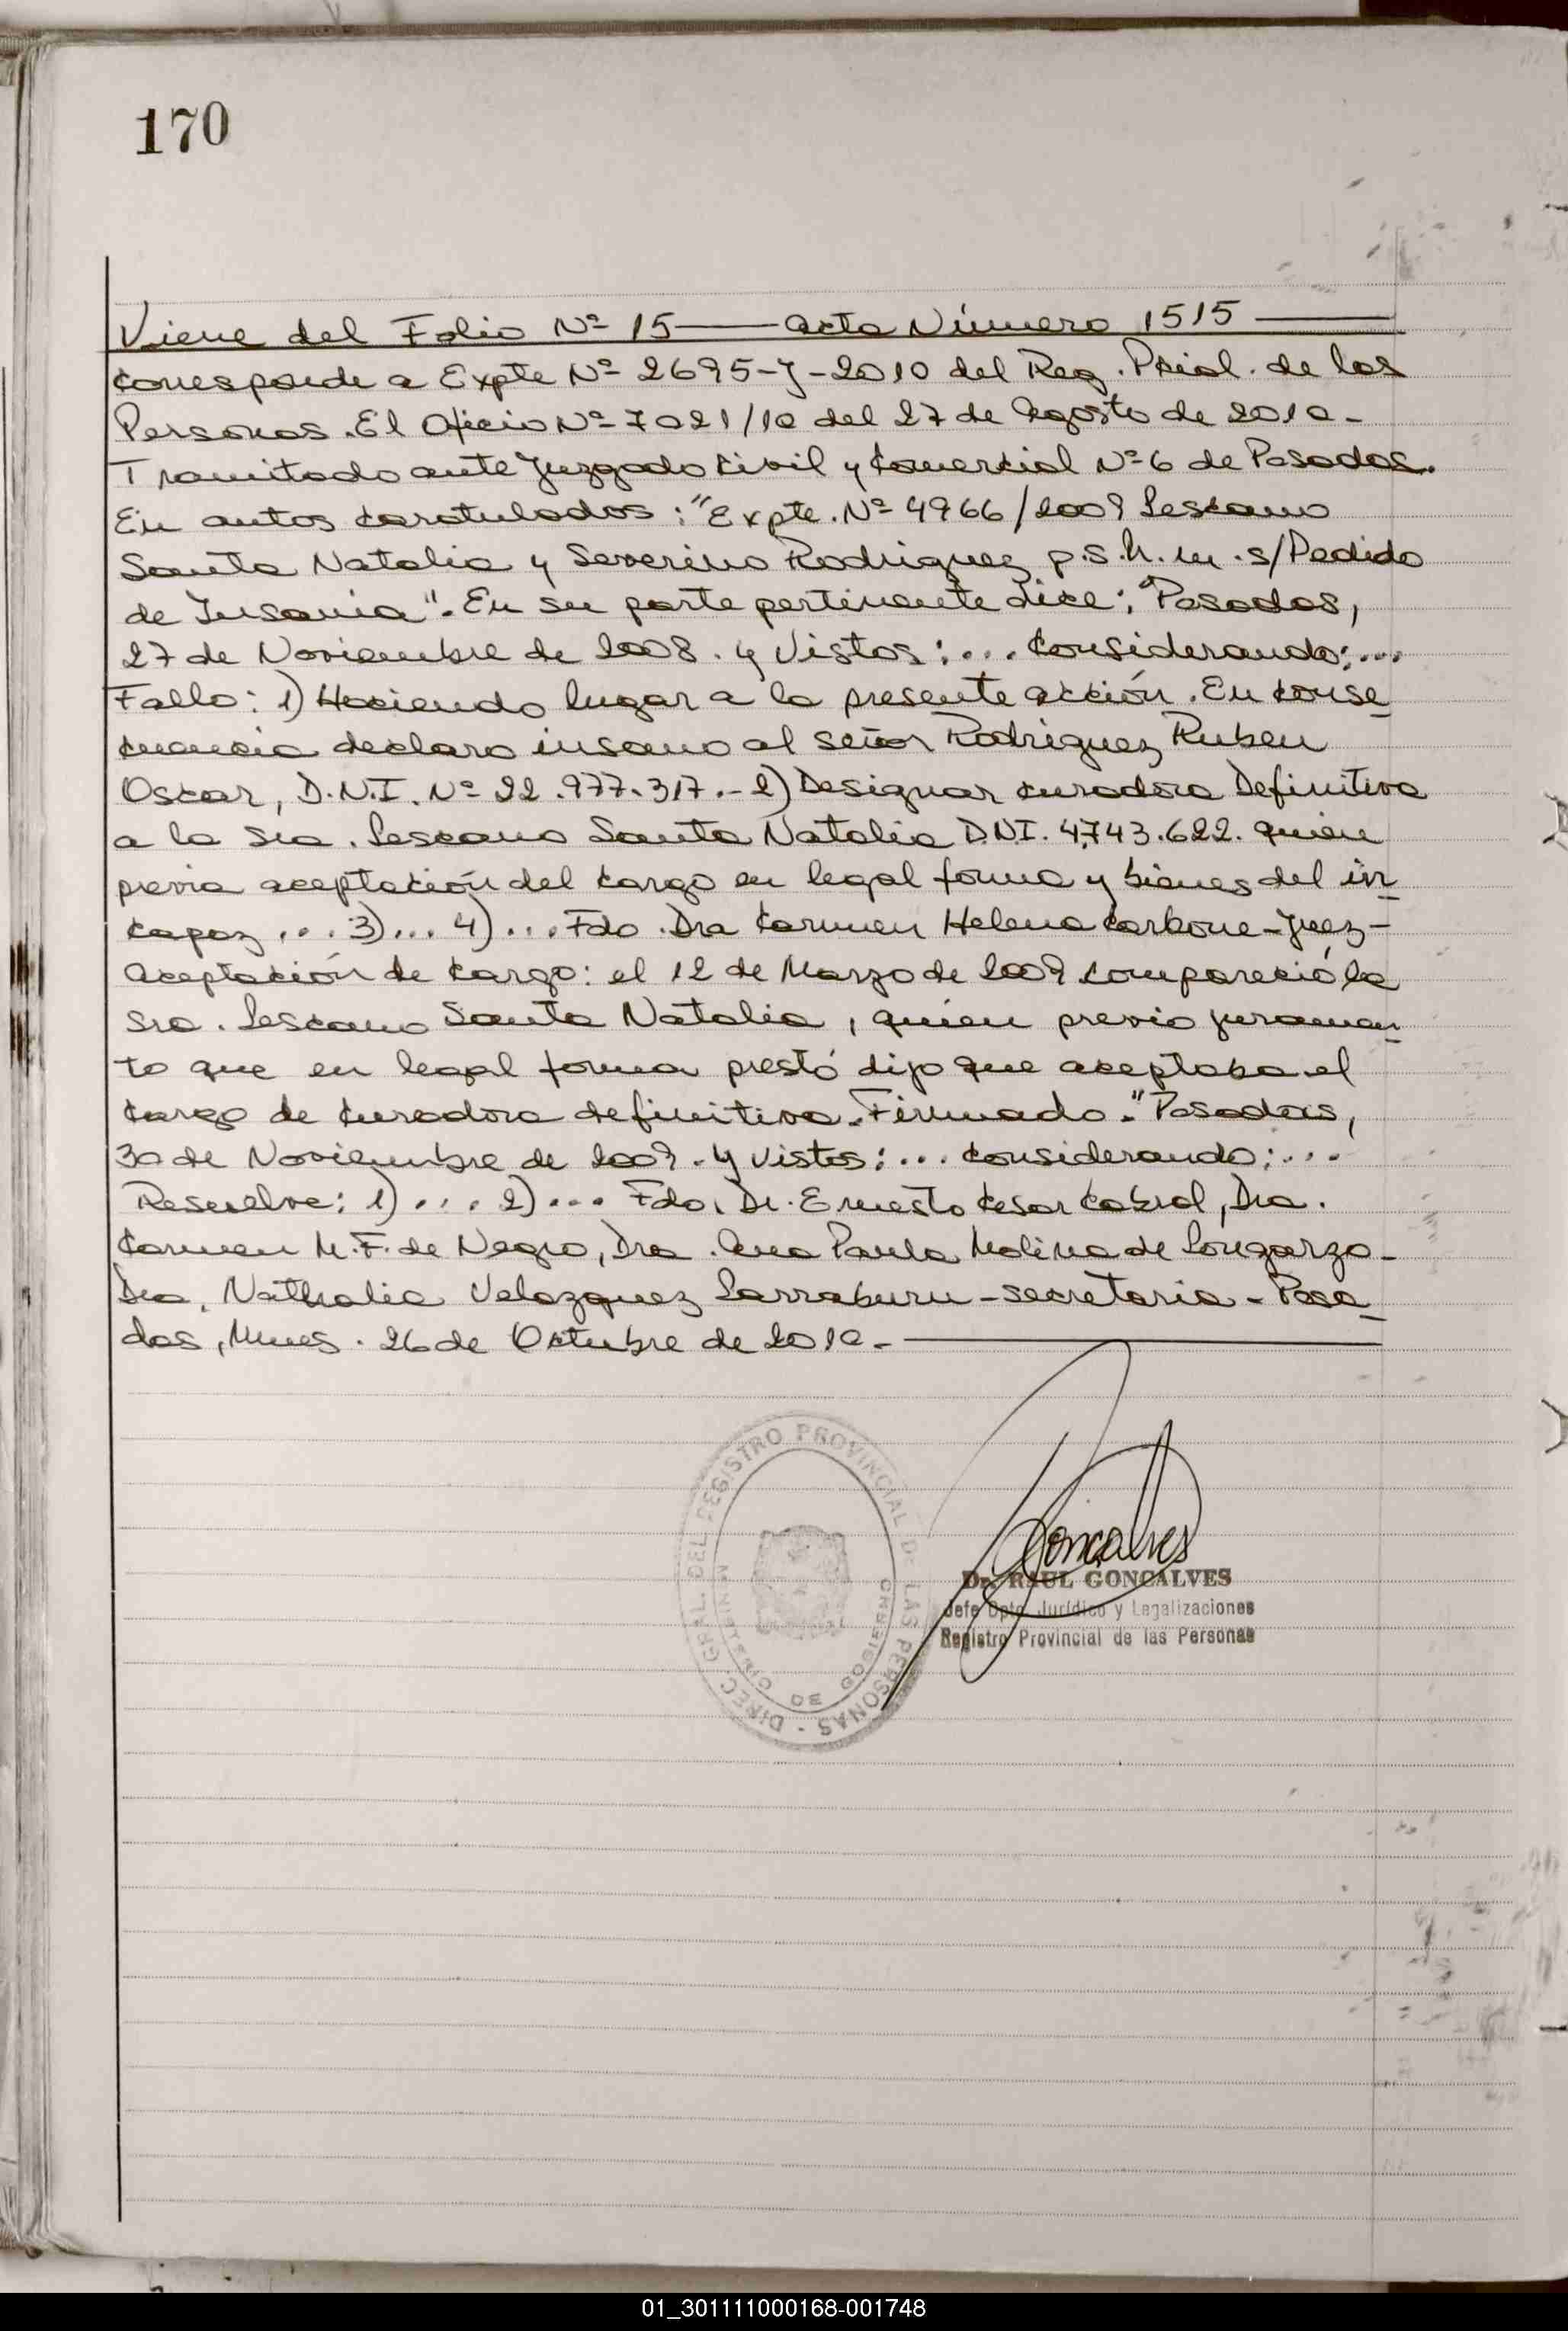 170
Viene del Folio Nº 15 —— Acta Número 1515 ——
corresponde a Expte Nº 2695-J-2010 del Reg. Pcial. de las
Personas. El Oficio Nº 7021/10 del 27 de Agosto de 2010-
Tramitado ante Juzgado Civil y Comercial Nº 6 de Posadas.
En autos caratulados: "Expte. Nº 4966/2009 Lescano
Santa Natalia y Severino Rodriguez p.s.h.m. s/Pedido
de Insania". En su parte pertinente dice: "Posadas,
27 de Noviembre de 2008. y Vistos: ... Considerando: ...
Fallo: 1) Haciendo lugar a la presente acción. En conse
cuencia declaro insano al señor Rodriguez Ruben
Oscar, D.N.I. Nº 22.977.317.- 2) Designar curadora Definitiva
a la Sra. Lescano Santa Natalia D.N.I. 4.743.622. quien
previa aceptación del cargo en legal forma y bienes del in
capaz ... 3)... 4) ... Fdo. Dra Carmen Helena Carbone-Juez-
Aceptación de cargo: el 12 de Marzo de 2009 compareció la
Sra. Lescano Santa Natalia, quien previo juramen
to que en legal forma prestó dijo que aceptaba el
cargo de curadora definitiva. Firmado." Posadas,
30 de Noviembre de 2009. y Vistos: ... Considerando: ...
Resuelve: 1) ... 2) ... Fdo. Dr. Ernesto Cesar Cabral, Dra.
Carmen M.F. de Negro, Dra. Ana Paula Molina de Longarzo-
Dra. Nathalia Velazquez Larraburu-secretaria-Posa
das, Mnes. 26 de Octubre de 2010.-
DIREC. GRAL. DEL REGISTRO PROVINCIAL DE LAS PERSONAS -
MINISTERIO DE GOBIERNO
Goncalves
Dr. RAUL GONCALVES
Jefe Dpto. Jurídico y Legalizaciones
Registro Provincial de las Personas
01_301111000168-001748